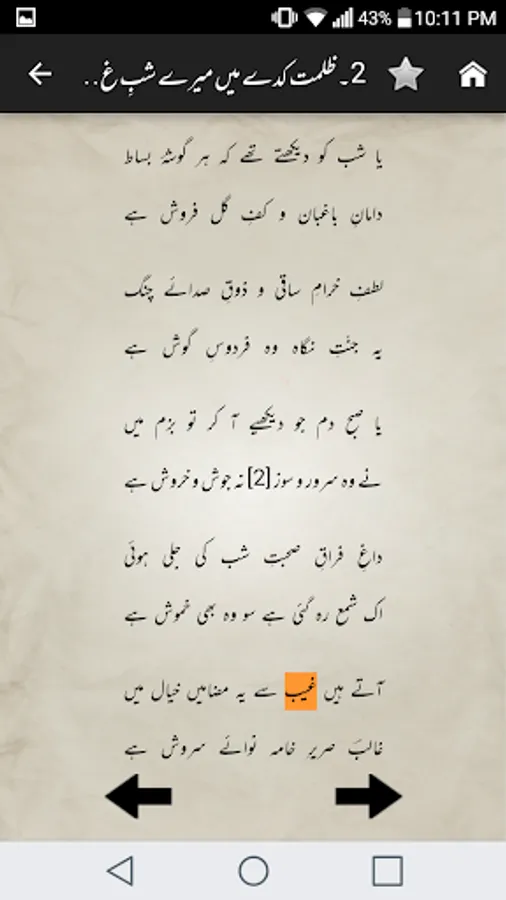 43% 10:11 PM
2۔ظلمت کدے میں میرے شبِ غ..
یا شب کو دیکھتے تھے کہ ہر گوشۂ بساط
دامانِ باغبان و کفِ گل فروش ہے
لطفِ خرامِ ساقی و ذوقِ صدائے چنگ
یہ جنّتِ نگاہ وہ فردوسِ گوش ہے
یا صبح دم جو دیکھیے آ کر تو بزم میں
نے وہ سرور و سوز [2] نہ جوش و خروش ہے
داغِ فراقِ صحبتِ شب کی جلی ہوئی
اک شمع رہ گئی ہے سو وہ بھی خموش ہے
آتے ہیں غیب سے یہ مضامیں خیال میں
غالبؔ صریرِ خامہ نوائے سروش ہے